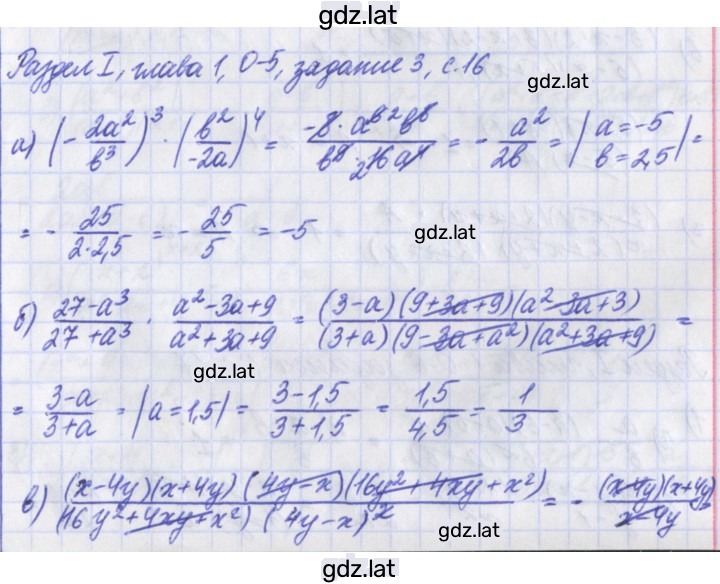 gdz.lat
Раздел I, глава 1, О-5, задание 3, с.16
gdz.lat
а) (-2a²/b³)³ · (b²/-2a)⁴ = -8·a⁶ ² b⁸/b⁹·₂16a⁴ = -a²/2b = |a=-5 b=2,5| =
= -25/2·2,5 = -25/5 = -5
gdz.lat
б) 27-a³/27+a³ · a²-3a+9/a²+3a+9 = (3-a)(9+3a+9)(a²-3a+3)/(3+a)(9-3a+a²)(a²+3a+9) =
gdz.lat
= 3-a/3+a = |a=1,5| = 3-1,5/3+1,5 = 1,5/4,5 = 1/3
в) (x-4y)(x+4y)(4y-x)(16y²+4xy+x²)/(16y²+4xy+x²)(4y-x)ˣ = -(x-4y)(x+4y)/x-4y
gdz.lat